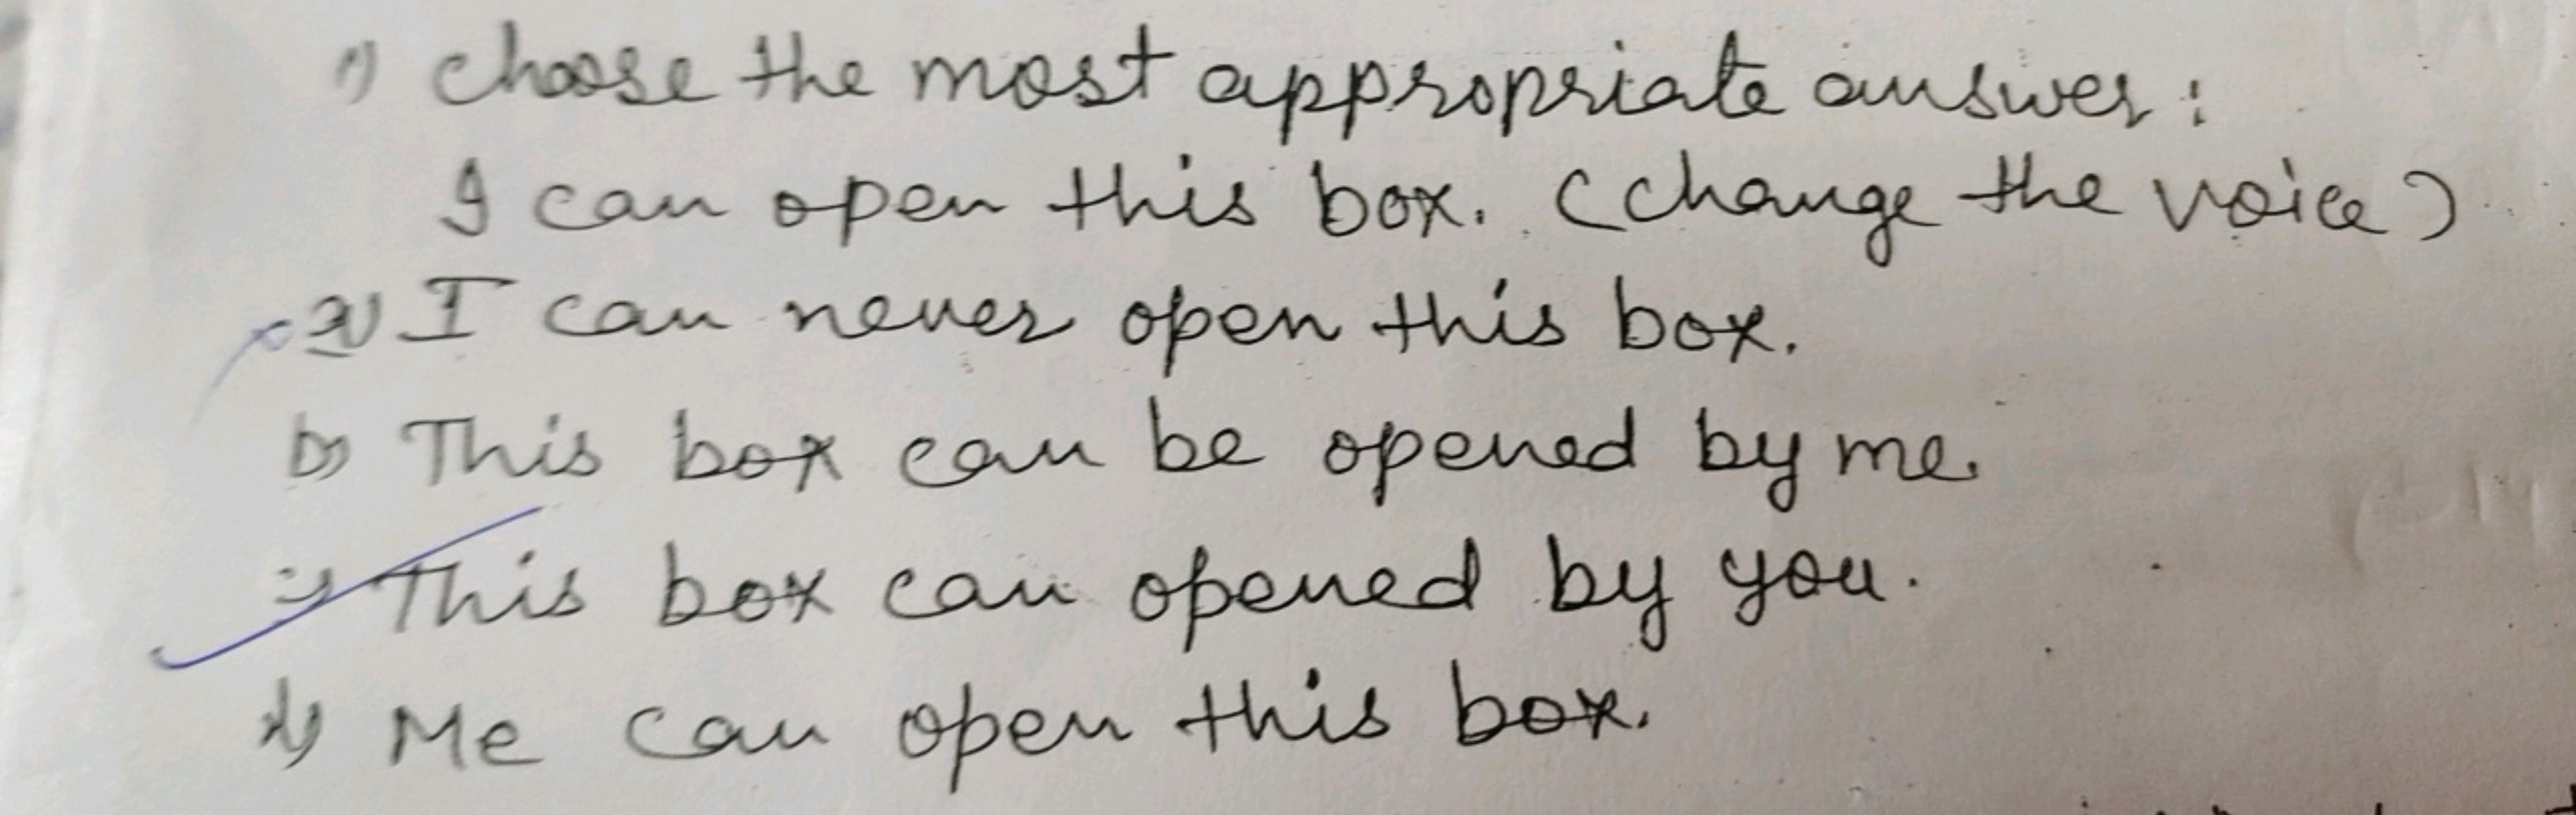 1) Choose the most appropriate answer:
I can open this box. (change the voice)
a) I can never open this box.
b) This box can be opened by me.
c) This box can opened by you.
d) Me can open this box.